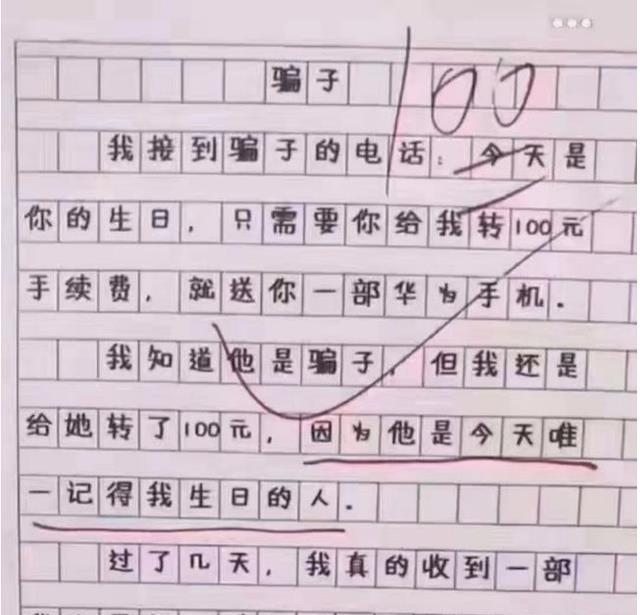 100
骗子
我接到骗子的电话:今天是
你的生日,只需要你给我转100元
手续费,就送你一部华为手机.
我知道他是骗子,但我还是
给她转了100元,因为他是今天唯
一记得我生日的人.
过了几天,我真的收到一部